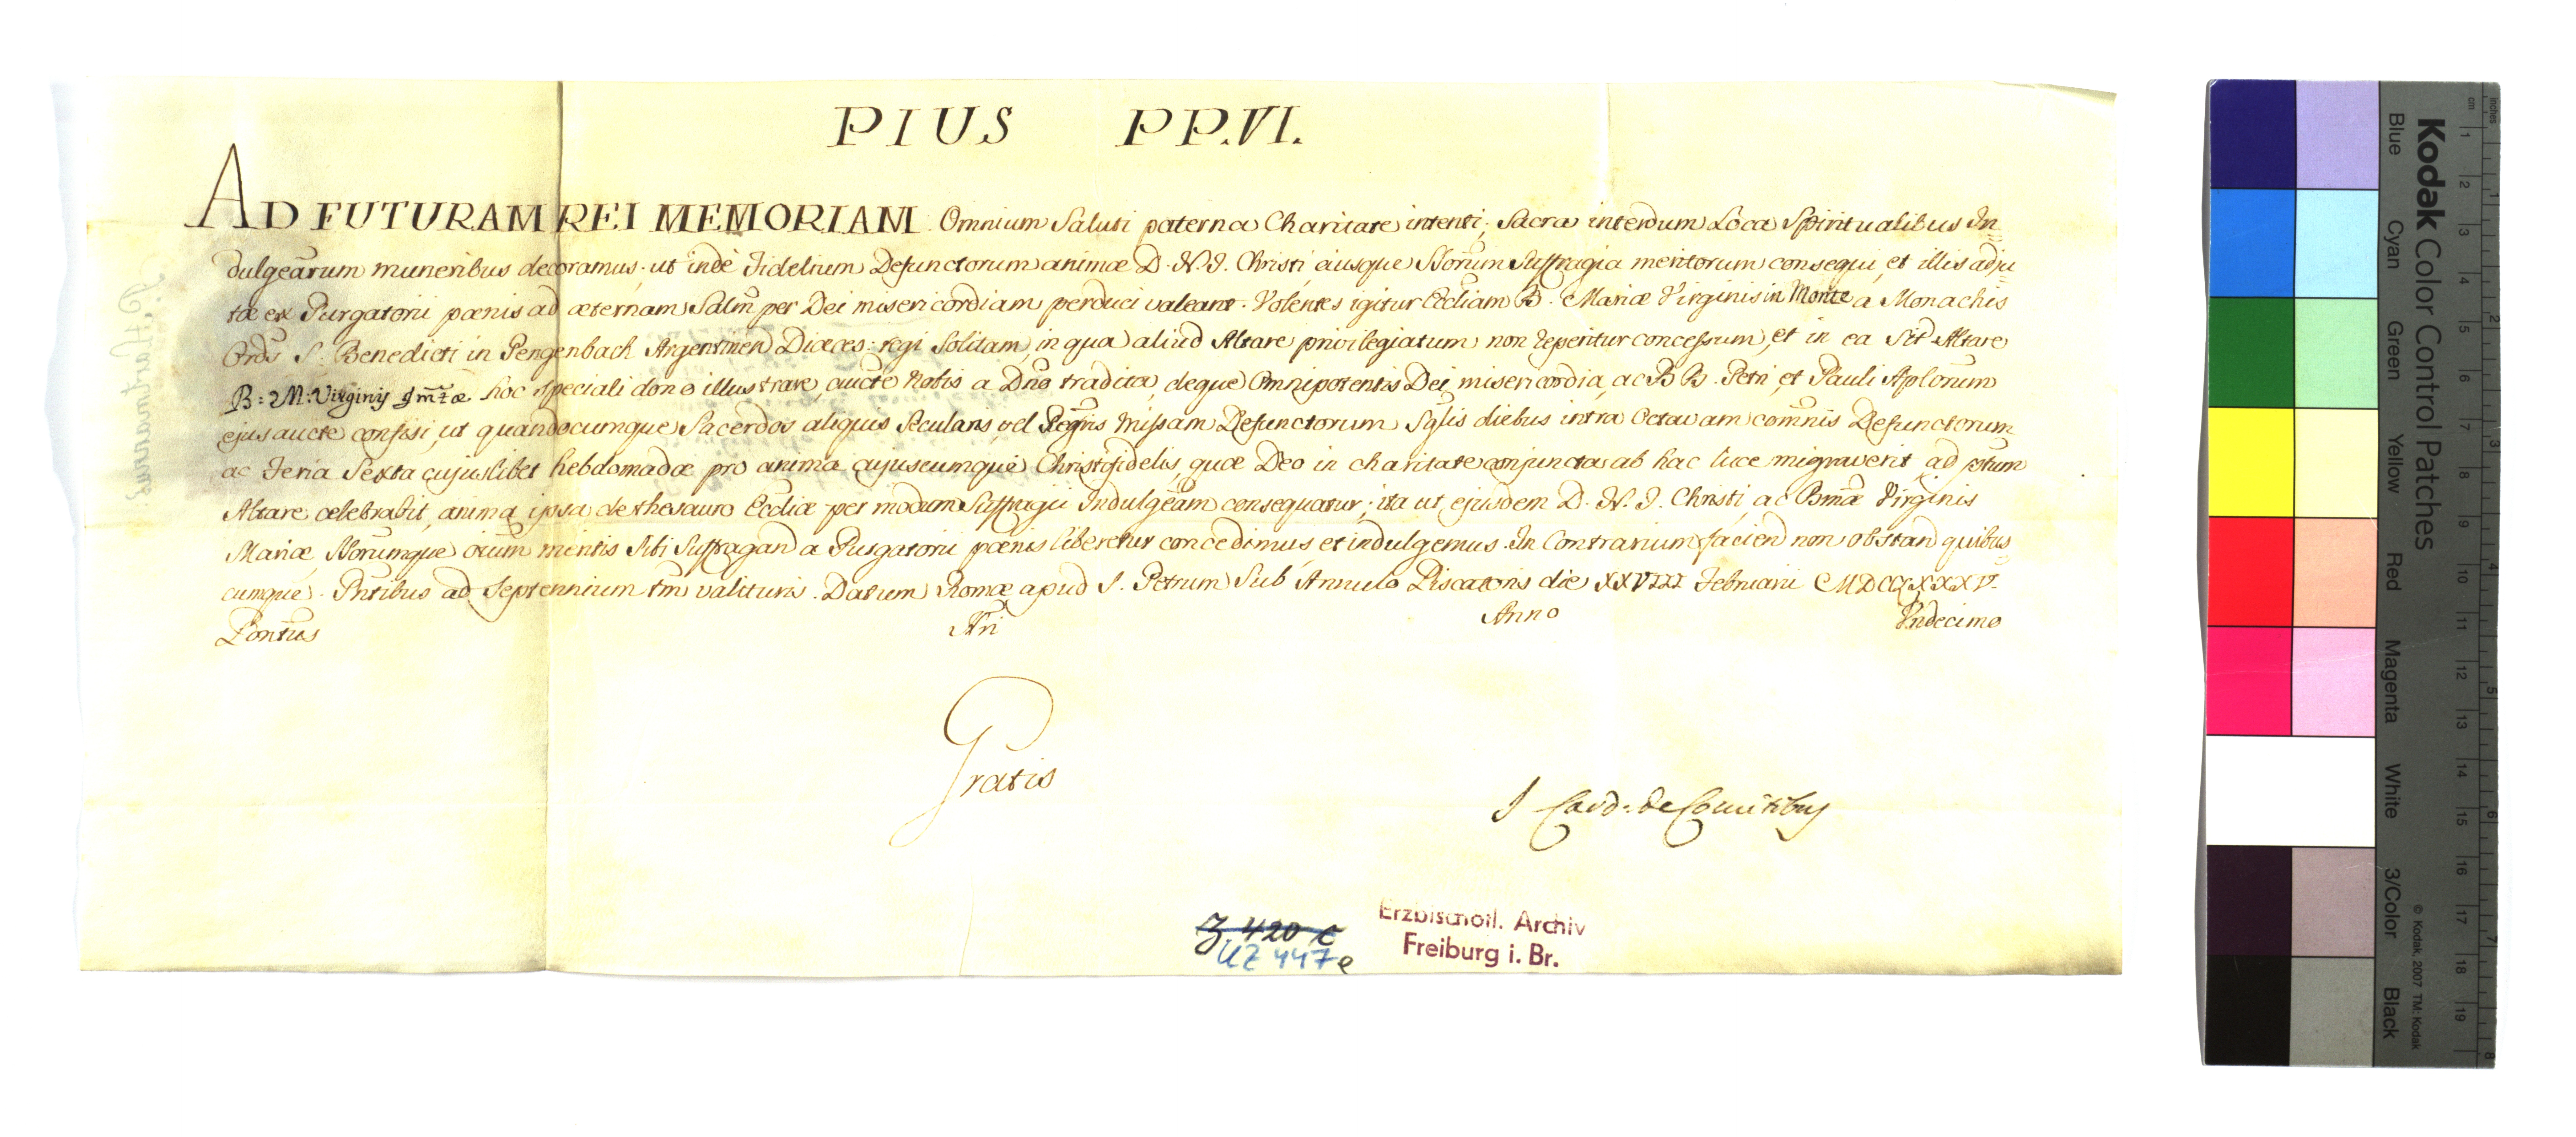 PIUS PP. VI.
AD FUTURAM REI MEMORIAM. Omnium Saluti paterna Charitate intenti, Sacra interdum Loca Spiritualibus In=
dulgeārum muneribus decoramus, ut inde Fidelium Defunctorum animæ D. N. J. Christi, ejusque SSorum Suffragia meritorum consequi, et illis adju
tæ ex Purgatorii pœnis ad æternam Salm̄ per Dei misericordiam perduci valeant. Volentes igitur Eccliam B. Mariæ Virginis in Monte a Monachis
Ordis S. Benedicti in Pengenbach Argentinen Diœces: regi Solitam, in qua aliud Altare privilegiatum non reperitur concessum, et in ea Sit Altare
B: M: Virginis hoc speciali dono illustrare, aucte Nobis a Dno tradita, deque Omnipotentis Dei misericordia, ac BB. Petri, et Pauli Aplorum
ejus aucte confisi, ut quandocumque Sacerdos aliquis Secularis, vel Regris Missam Defunctorum Sglis diebus intra Octavam com̄nis Defunctorum
ac Feria Sexta cujuslibet hebdomadæ pro anima cujuscumque Christifidelis, quæ Deo in charitate conjuncta ab hac luce migraverit, ad ptum
Altare celebrabit, anima ipsa de thesauro Eccliæ per modum Suffragii Indulgeām consequatur; ita ut, ejusdem D. N. J. Christi, ac Bm̄æ Virginis
Mariæ, SSorumque oium meritis Sibi Suffragan̄ a Purgatorii pœnis liberetur concedimus et indulgemus. In Contrarium facien̄ non obstan̄ quibus=
cumque. Pntibus ad Septennium tm̄ valituris. Datum Romæ apud S. Petrum Sub Annulo Piscatoris die XXVIII Februarii MDCCLXXXV.
Pontus Nri Anno Undecimo
Gratis
J Card: de Comitibus
Z 420 c
UZ 447 e
Erzbischöfl. Archiv
Freiburg i. Br.
Kodak Color Control Patches
Blue Cyan Green Yellow Red Magenta White 3/Color Black
© Kodak, 2007 TM: Kodak
cm 1 2 3 4 5 6 7 8 9 10 11 12 13 14 15 16 17 18 19
inches 1 2 3 4 5 6 7 8